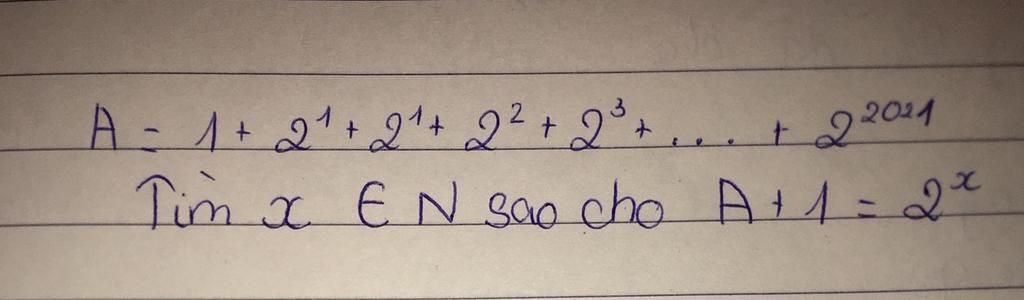 A = 1 + 2¹ + 2¹ + 2² + 2³ + ... + 2²⁰²¹
Tìm x ∈ N sao cho A + 1 = 2ˣ